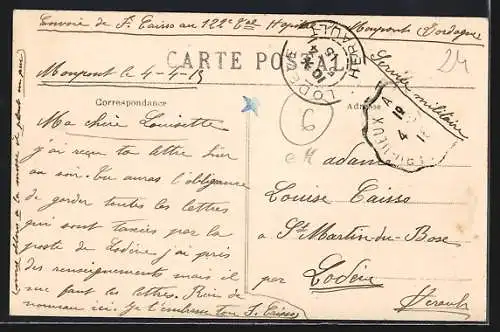 Envoie de F. Caisso au 122e Tal Hopital Monpont Dordogne
CARTE POSTALE
Service militaire
24
Monpont le 4-4-15
Correspondance
Adresse
LODÈVE
HERAULT
6
Ma chère Louisette
j'ai reçu ta lettre hier
au soir. Tu auras l'obligeance
de garder toutes les lettres
qui sont taxées par la
poste de Lodève j'ai pris
des renseignements mais il
me faut les lettres. Rien de
nouveau ici. Je t'embrasse ton F. Caisso
Madame
Louise Caisso
a St Martin-du-Bosc
par Lodève
Herault